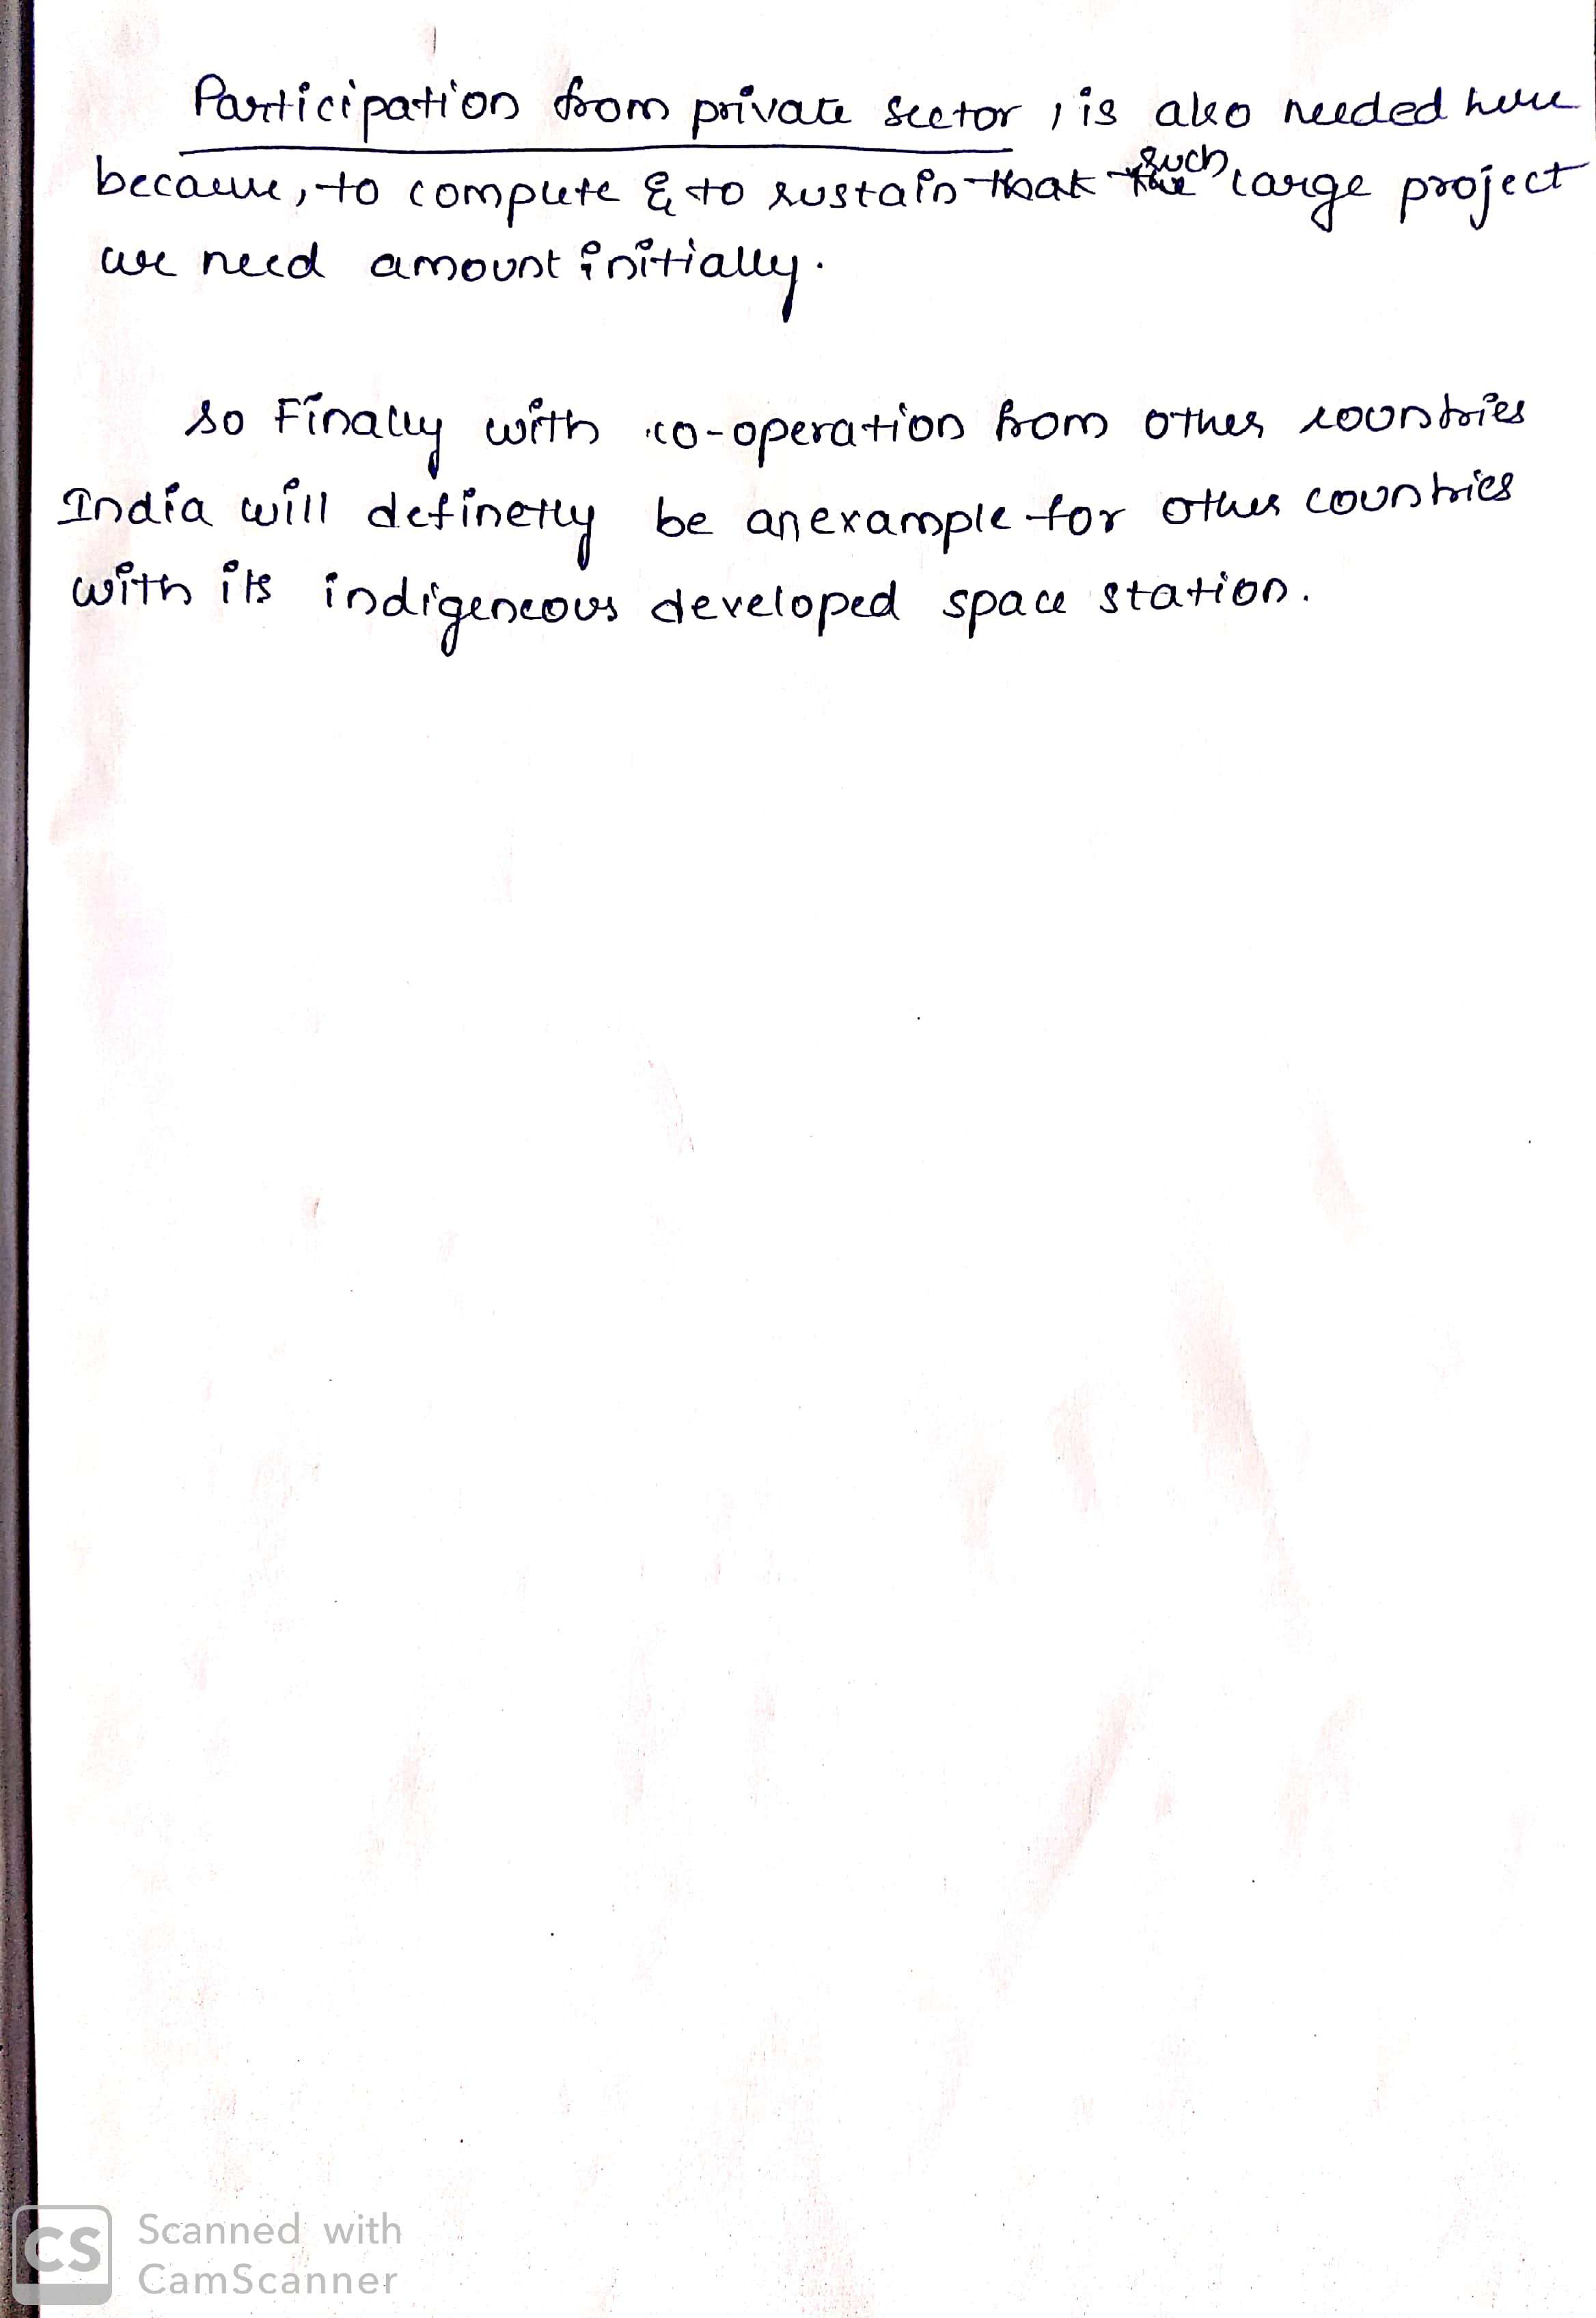 Participation from private sector, is also needed here
because, to compute & to sustain that such large project
we need amount initially.
So Finally with co-operation from other countries
India will definetly be an example for other countries
with its indigeneous developed space station.
CS Scanned with
CamScanner